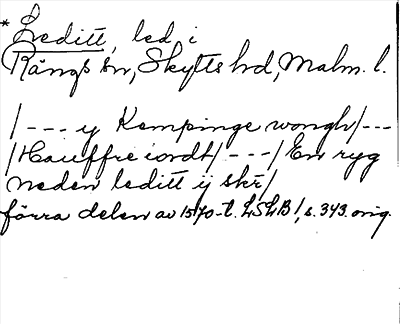 * Leditt, led i
Rängs sn, Skytts hd, Malm. l.
/--- y Kempinge wongh/---
/Hauffre iordt/---/ En ryg
neden leditt ij skr/
förra delen av 1570-t. LSLB 1, s. 343. orig.